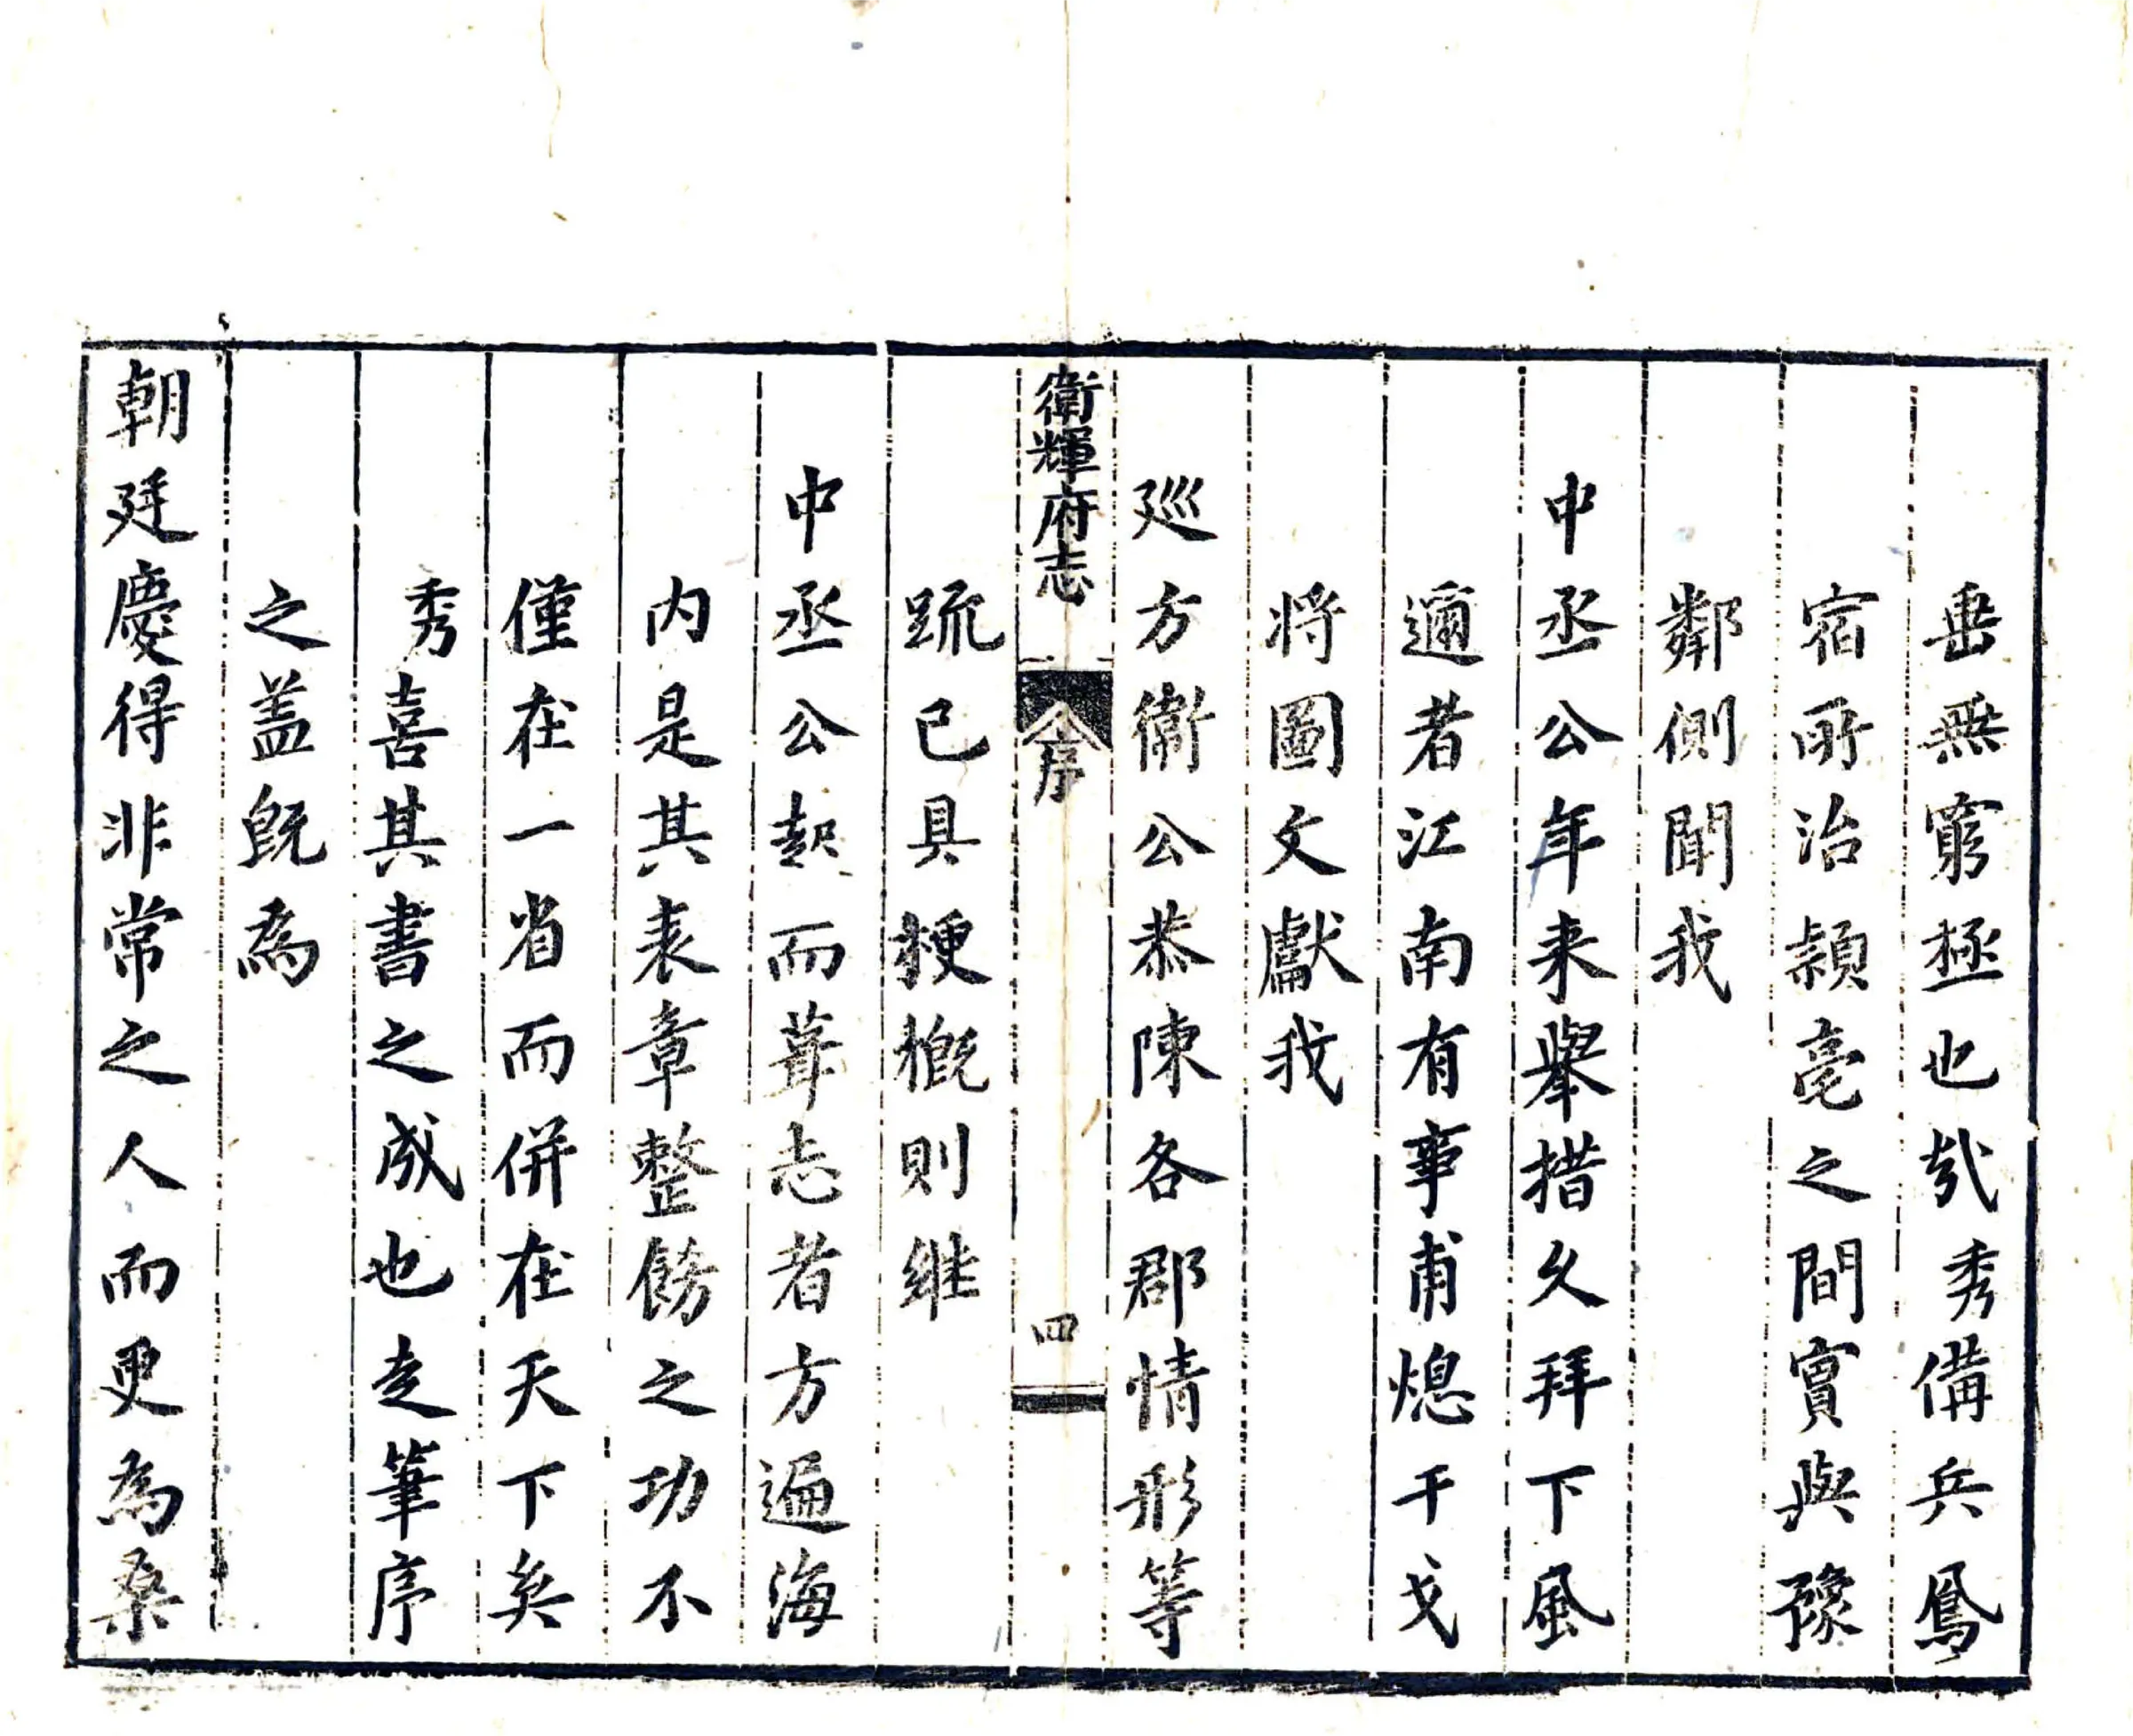 垂無窮極也哉秀備兵鳳
宿所治潁亳之間實與豫
鄰側聞我
中丞公年来舉措久拜下風
適者江南有事甫熄干戈
将圖文獻我
廵方衞公恭陳各郡情形等
䟽已具梗概則継
衛輝府志
序
四
中丞公起而葺志者方遍海
内是其表章整飭之功不
僅在一省而併在天下矣
秀喜其書之成也走筆序
之盖既為
朝廷慶得非常之人而更為桑